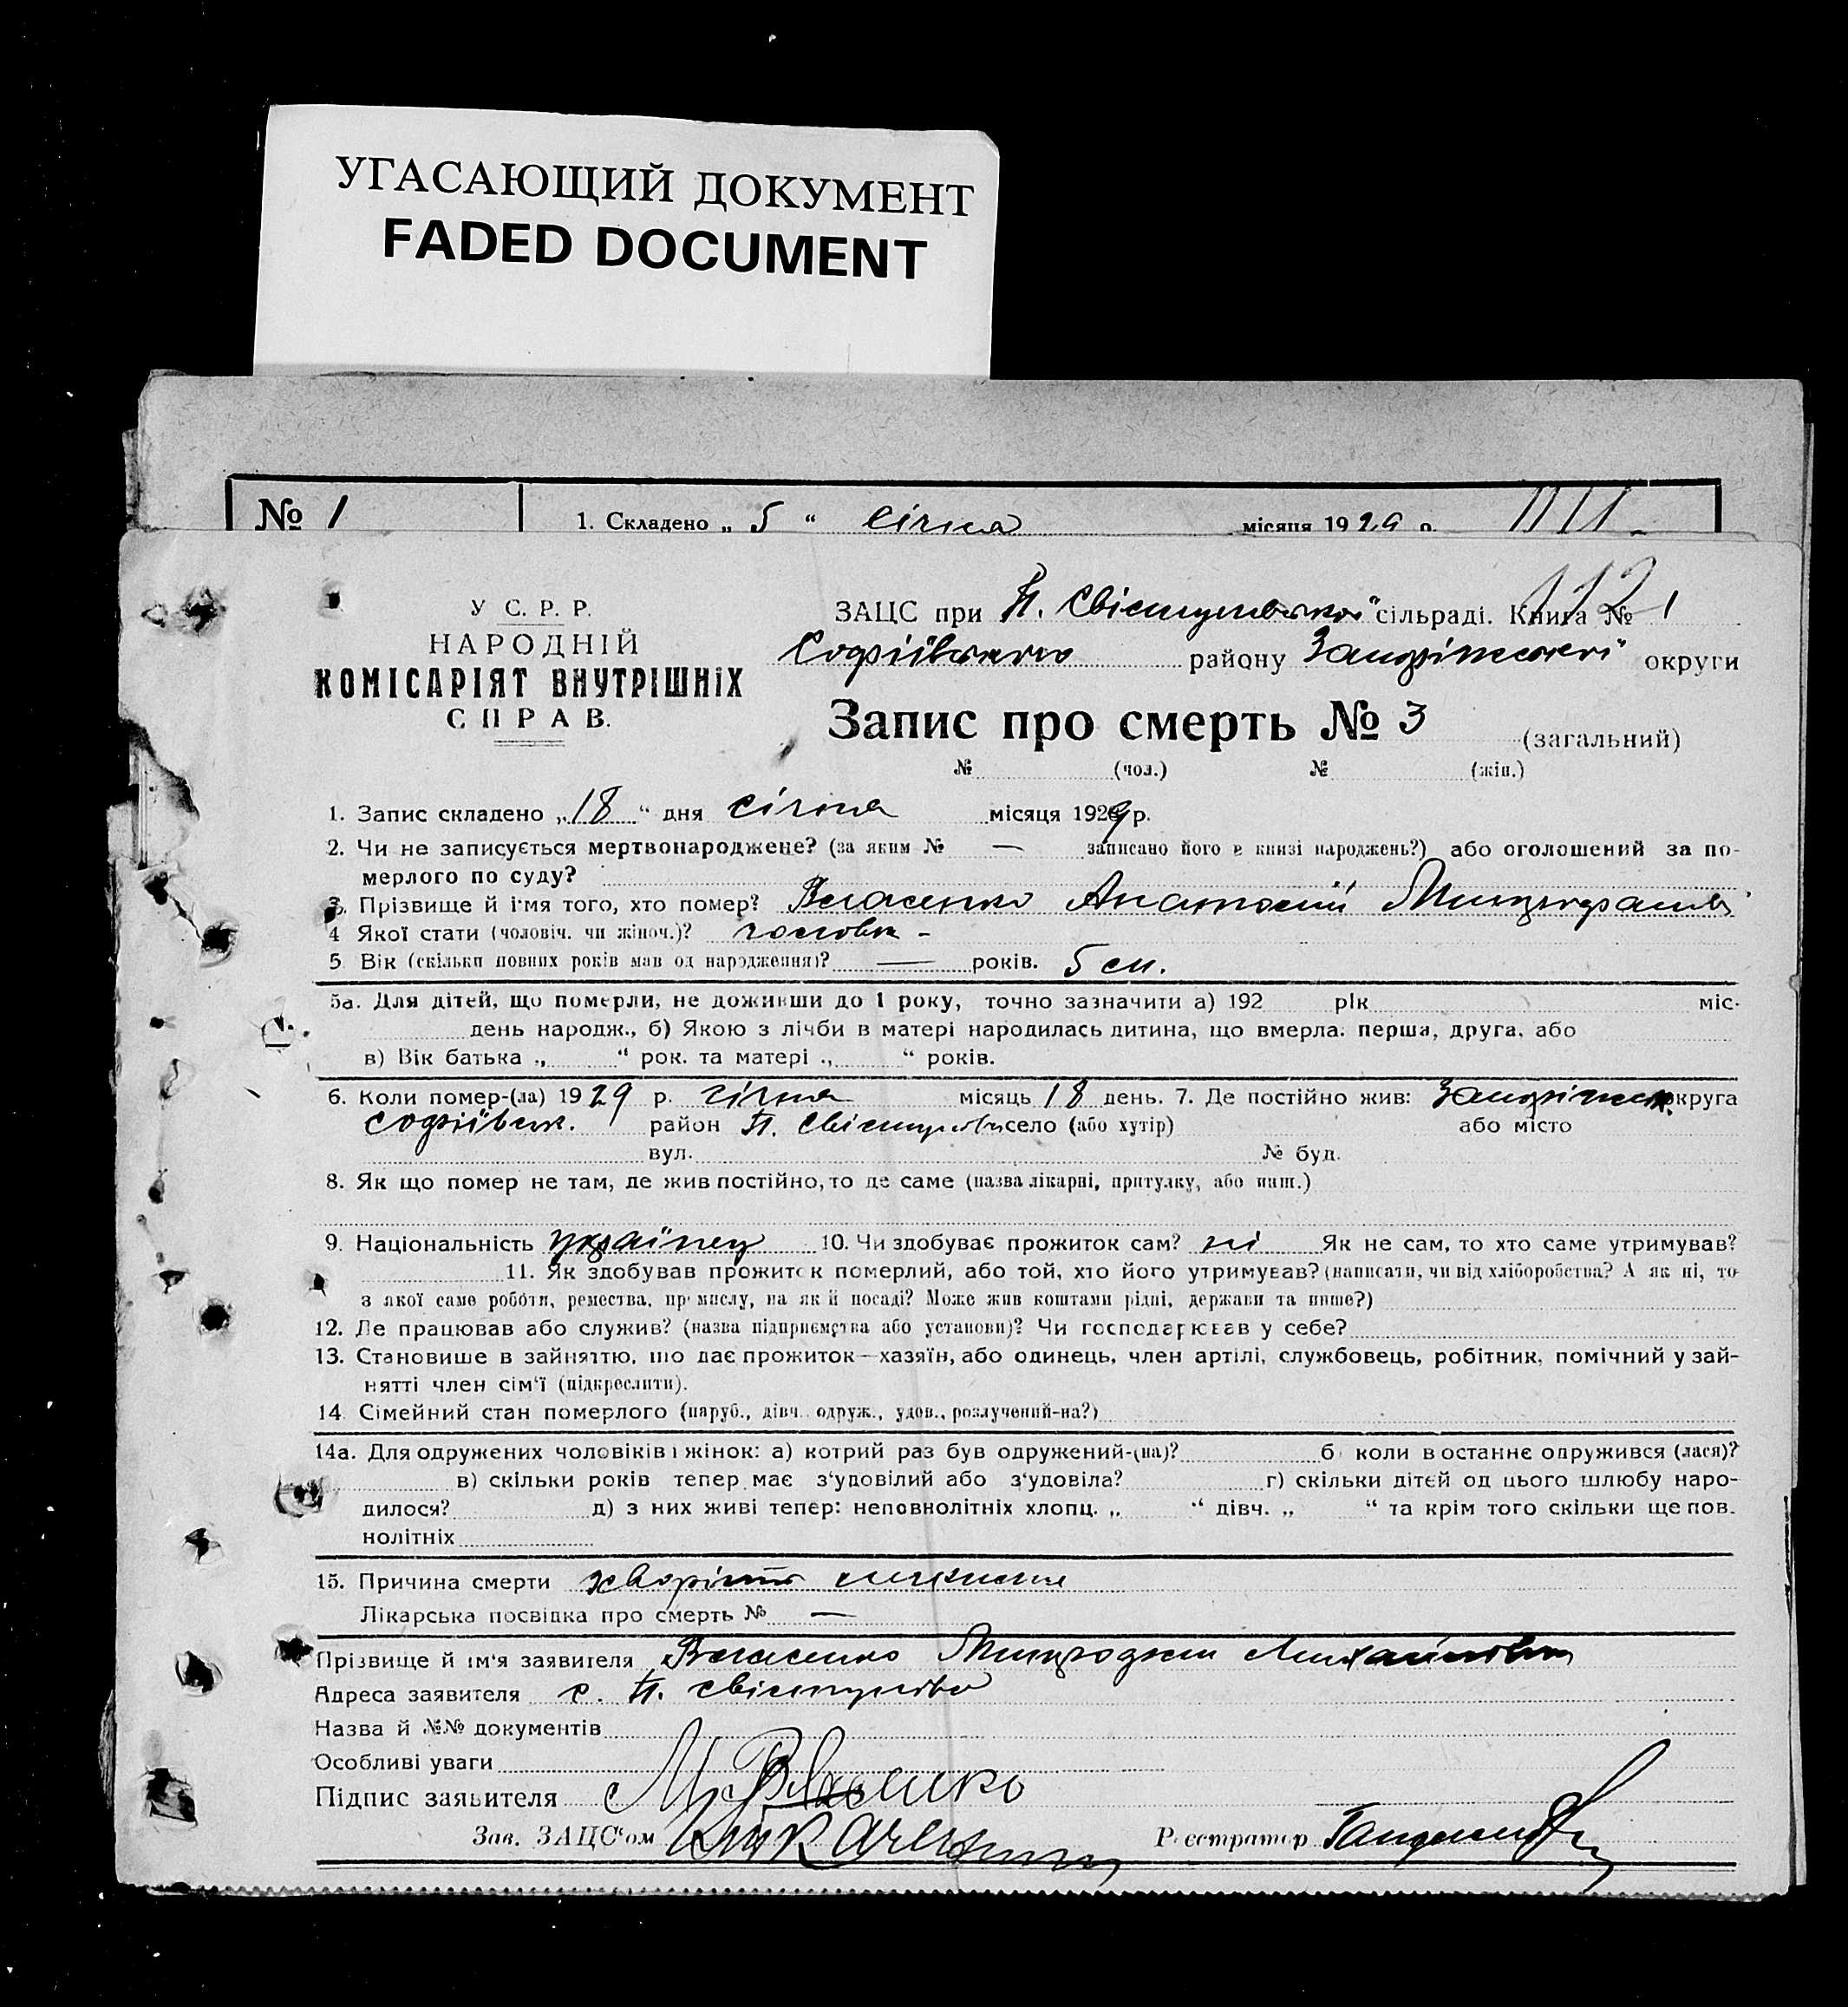 УГАСАЮЩИЙ ДОКУМЕНТ
FADED DOCUMENT
№ 1 1. Складено „ 5 “ січня місяця 1929 р.
У С. Р. Р.
НАРОДНІЙ
КОМІСАРІЯТ ВНУТРІШНІХ
СПРАВ.
ЗАЦС при П. Свістунівської сільраді. Книга № 1
Софіївського району Запоріжської округи
Запис про смерть № 3 (загальний)
№ (чол.) № (жін.)
1. Запис складено „ 18 “ дня січня місяця 1929 р.
2. Чи не записується мертвонароджене? (за яким № — записано його в книзі народжень?) або оголошений за по-
мерлого по суду?
3. Прізвище й імя того, хто помер? Власенко Анатолій
4 Якої стати (чоловіч. чи жіноч.)? чоловік -
5 Вік (скільки повних років мав од народження)? — років. 5 см.
5а. Для дітей, що померли, не доживши до 1 року, точно зазначити а) 192 рік міс-
день народж., б) Якою з лічби в матері народилась дитина, що вмерла: перша, друга, або
в) Вік батька „ “ рок. та матері „ “ років.
6. Коли помер-(ла) 1929 р. січня місяць 18 день. 7. Де постійно жив: Запоріжськ. округа
Софіївськ. район П. Свістунівка село (або хутір) або місто
вул. № буд.
8. Як що помер не там, де жив постійно, то де саме (назва лікарні, притулку, або инш.)
9. Національність українец 10. Чи здобуває прожиток сам? ні Як не сам, то хто саме утримував?
11. Як здобував прожиток померлий, або той, хто його утримував? (написати, чи від хліборобства? А як ні, то
з якої саме роботи, ремества, промислу, на якій посаді? Може жив коштами рідні, держави та инше?)
12. Де працював або служив? (назва підприємства або установи)? Чи господарював у себе?
13. Становище в зайняттю, що дає прожиток—хазяїн, або одинець, член артілі, службовець, робітник, помічний у зай-
нятті член сім'ї (підкреслити).
14. Сімейний стан померлого (паруб., дівч. одруж., удов., розлучений-на?)
14а. Для одружених чоловіків і жінок: а) котрий раз був одружений-(на)? б) коли востаннє одружився (лася)?
в) скільки років тепер має з'удовілий або з'удовіла? г) скільки дітей од цього шлюбу наро-
дилося? д) з них живі тепер: неповнолітніх хлопц. „ “ дівч. „ “ та крім того скільки ще пов-
нолітніх
15. Причина смерти
Лікарська посвідка про смерть № —
Прізвище й ім'я заявителя Власенко Михайлович
Адреса заявителя с. П. Свістунівка
Назва й №№ документів
Особливі уваги
Підпис заявителя М. Власенко
Зав. ЗАЦС'ом Реєстратор